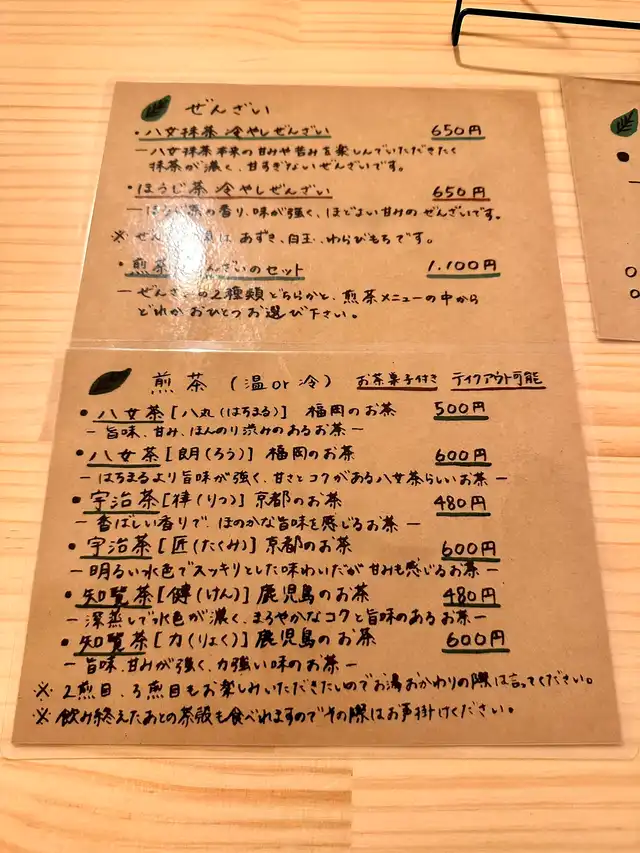 ぜんざい
・八女抹茶 冷やしぜんざい 650円
－八女抹茶本来の甘みや苦みを楽しんでいただきたく
抹茶が濃く、甘すぎないぜんざいです。
・ほうじ茶 冷やしぜんざい 650円
－ほうじ茶の香り、味が強く、ほどよい甘みの ぜんざいです。
※ ぜん は あずき、白玉、わらびもちです。
・煎茶 んざいのセット 1,100円
－ぜんざいの2種類どちらかと、煎茶メニューの中から
どれか おひとつお選び下さい。
煎茶 (温or冷) お茶菓子付き テイクアウト可能
・八女茶[八丸(はちまる)] 福岡のお茶 500円
－旨味、甘み、ほんのり渋みのあるお茶－
・八女茶[朗(ろう)] 福岡のお茶 600円
－はちまるより旨味が強く、甘さとコクがある八女茶らしいお茶－
・宇治茶[律(りつ)] 京都のお茶 480円
－香ばしい香りで、ほのかな旨味を感じるお茶－
・宇治茶[匠(たくみ)] 京都のお茶 600円
－明るい水色でスッキリとした味わいだが甘みも感じるお茶－
・知覧茶[健(けん)] 鹿児島のお茶 480円
－深蒸しで水色が濃く、まろやかなコクと旨味のあるお茶－
・知覧茶[力(りょく)] 鹿児島のお茶 600円
－旨味、甘みが強く、力強い味のお茶－
※ 2煎目、3煎目もお楽しみいただきたいのでお湯おかわりの際は言ってください。
※ 飲み終えたあとの茶殻も食べれますのでその際はお声掛けください。